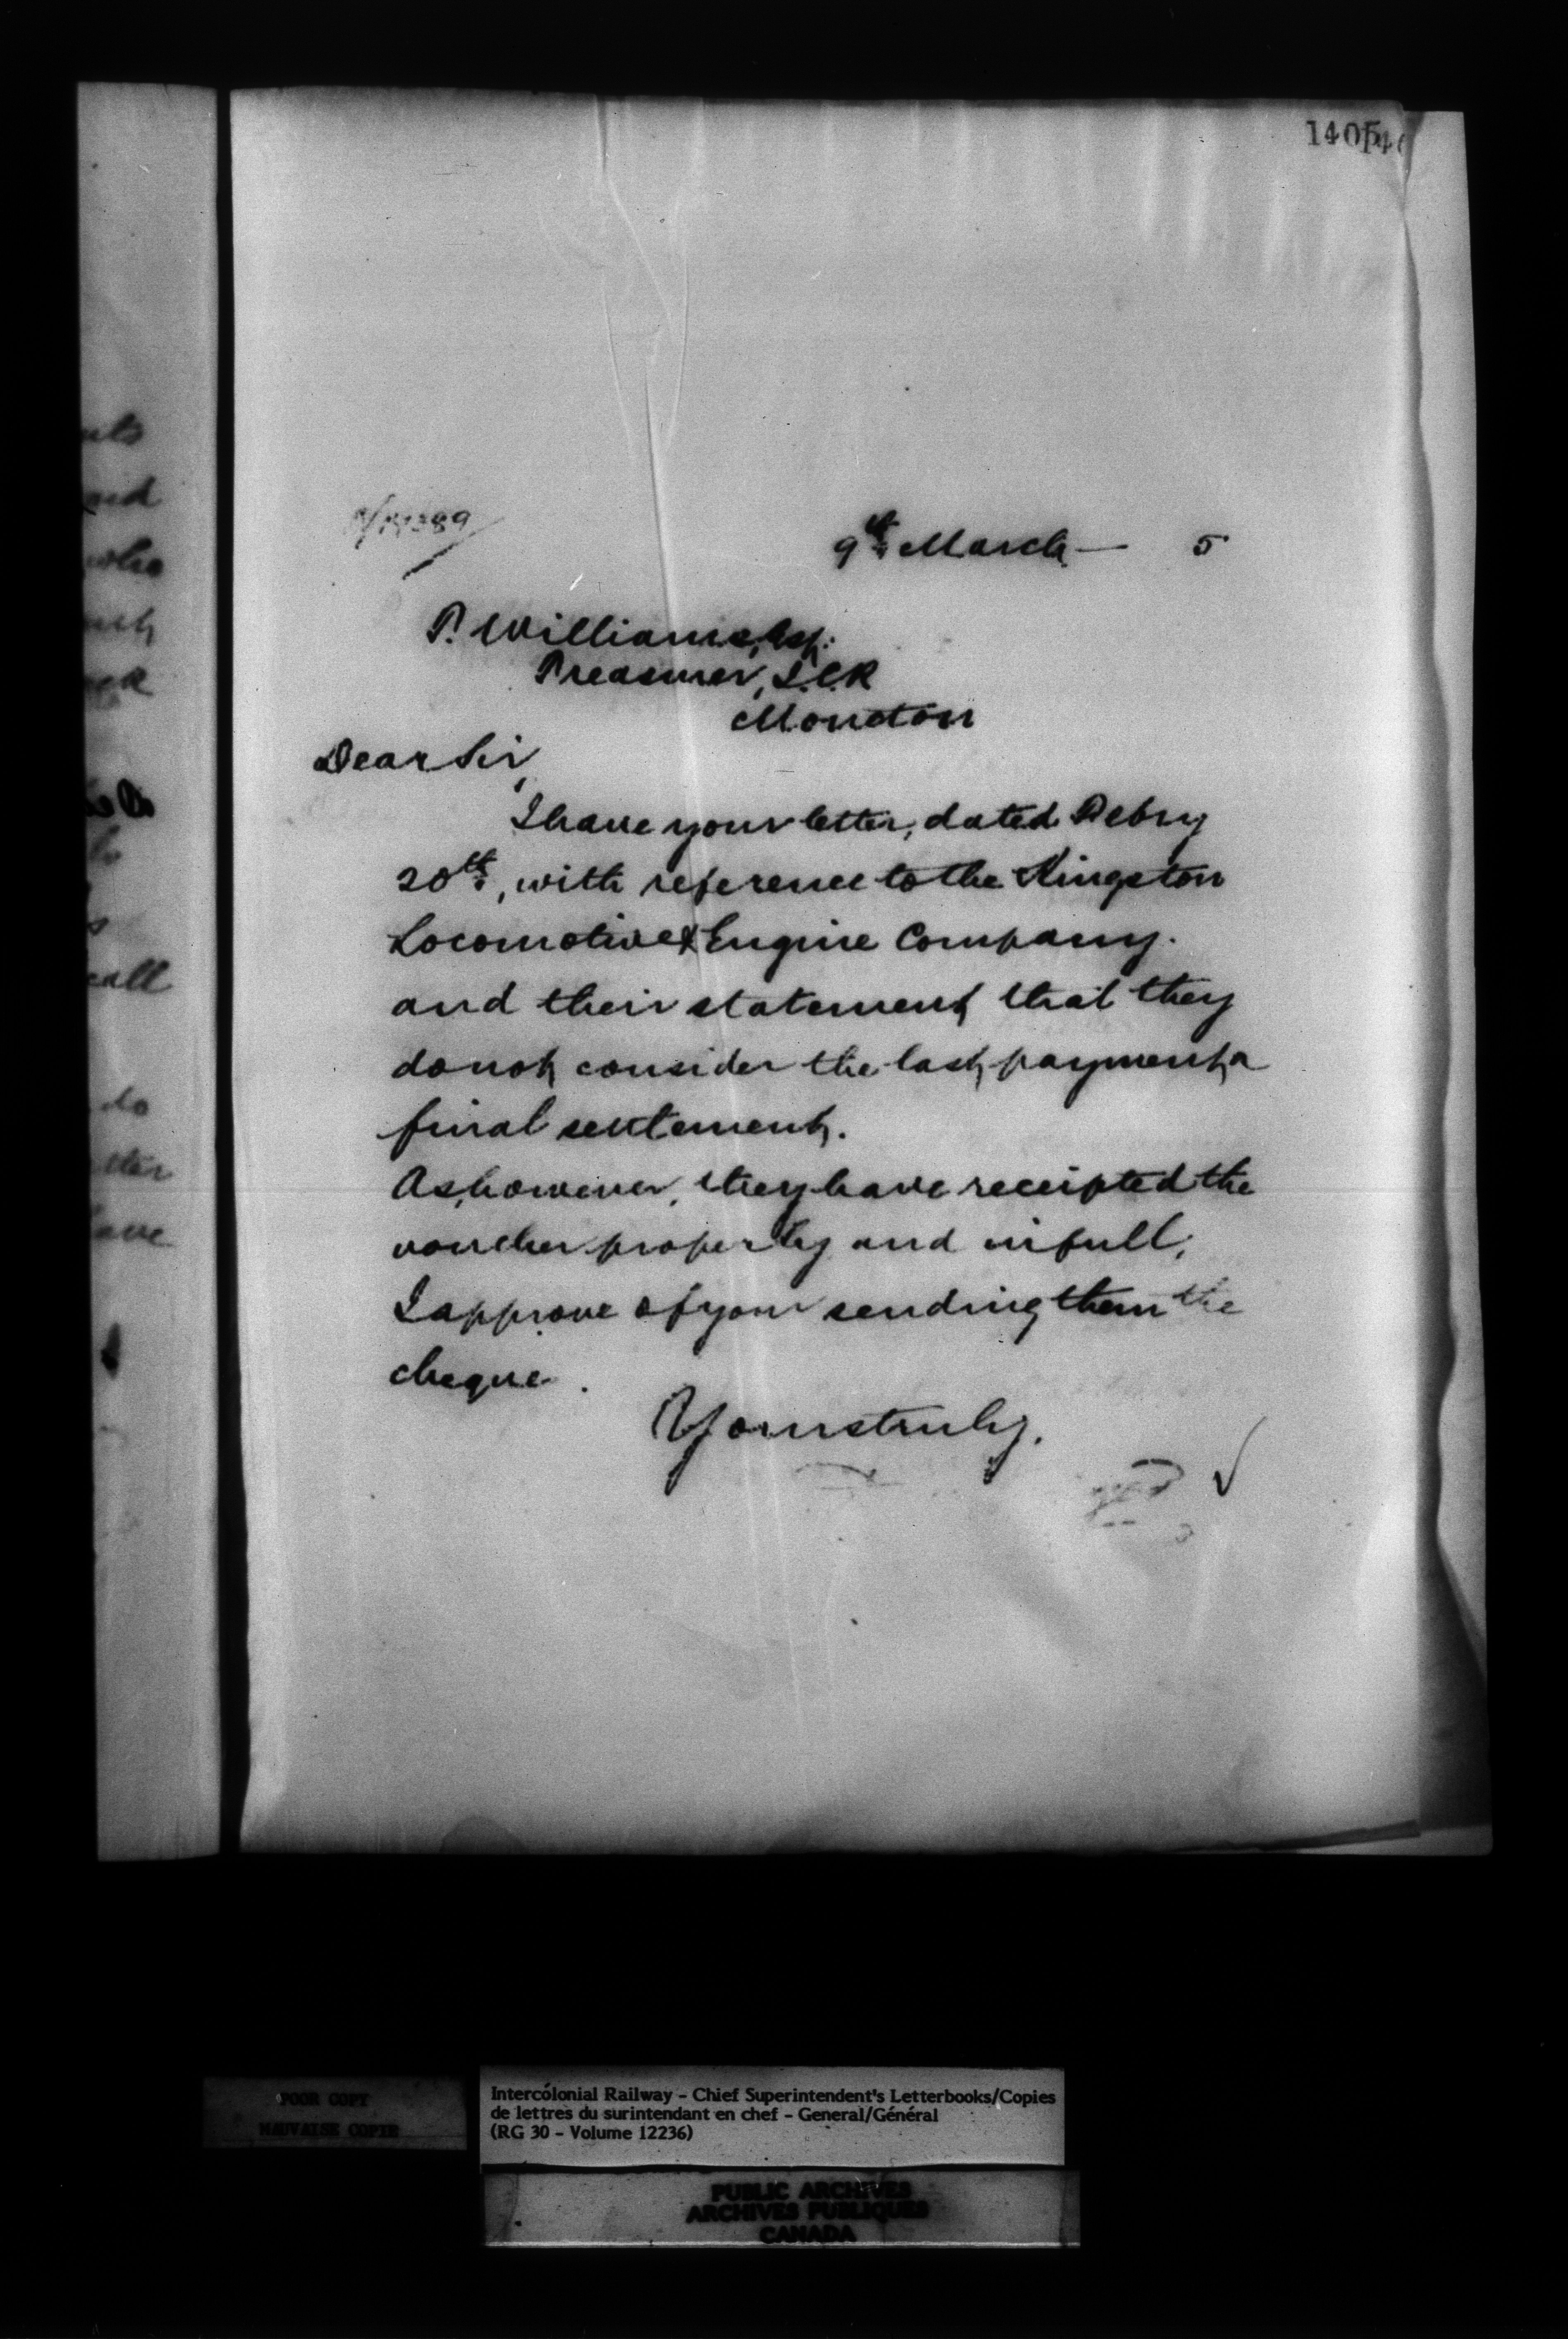 1405
9th March — 5
T. Williams, Esq.
Treasurer, I.C.R
Moncton
Dear Sir,
I have your letter, dated Febry
20th, with reference to the Kingston
Locomotive & Engine Company.
and their statement that they
do not consider the last payment a
final settlement.
As, however, they have receipted the
voucher properly and in full,
I approve of your sending them the
cheque.
Yours truly.
uts
who
call
do
tter
ave
POOR COPY
MAUVAISE COPIE
Intercolonial Railway - Chief Superintendent's Letterbooks/Copies
de lettres du surintendant en chef - General/Général
(RG 30 - Volume 12236)
PUBLIC ARCHIVES
ARCHIVES PUBLIQUES
CANADA